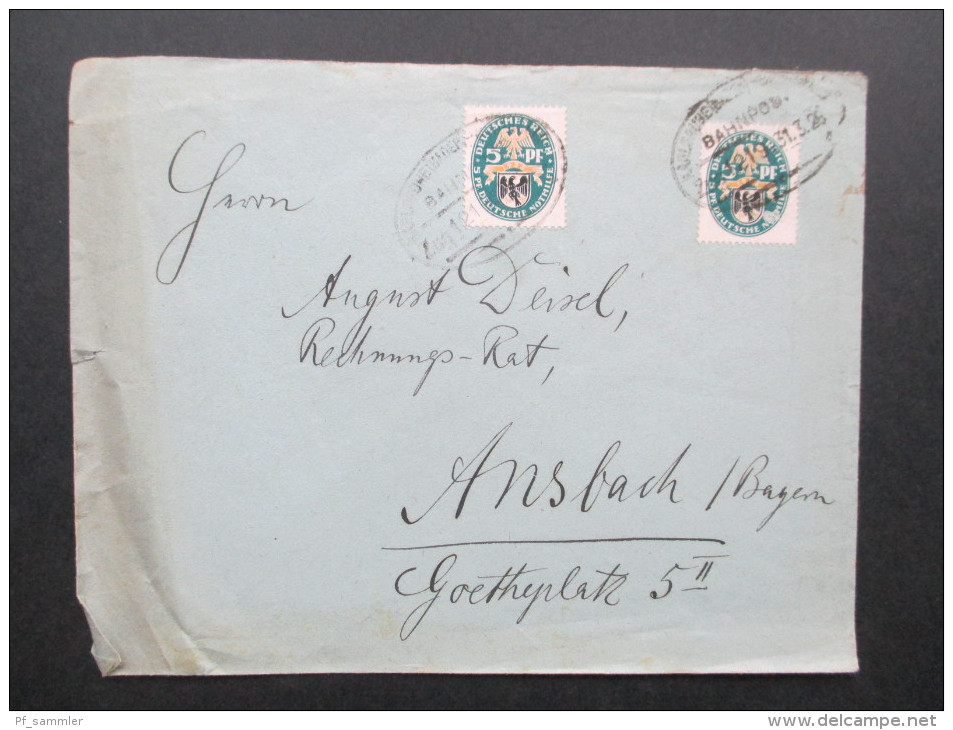 BAHNPOST
31.3.26
DEUTSCHES REICH
5 PF
5 PF. DEUTSCHE NOTHILFE
DEUTSCHES REICH
5 PF
5 PF. DEUTSCHE NOTHILFE
Herrn
August Deisel,
Rechnungs-Rat,
Ansbach / Bayern
Goetheplatz 5 II
Pf_sammler
www.delcampe.net